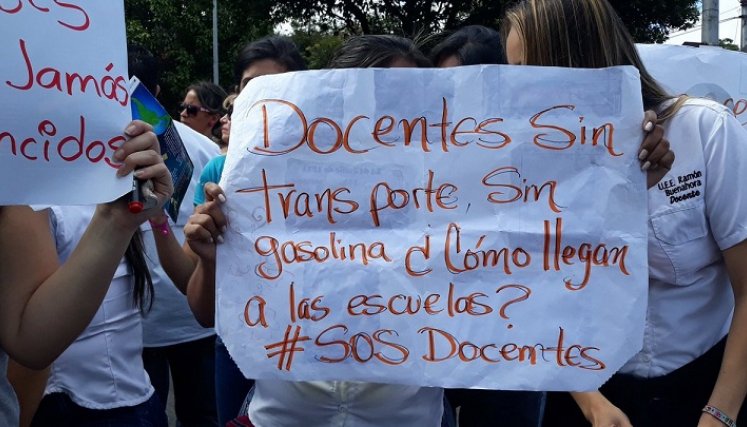 Jamás
ncidos
Docentes Sin
transporte, Sin
gasolina ¿Cómo llegan
a las escuelas?
#SOS Docentes
U.E.E. Ramón
Buenahora
Docente